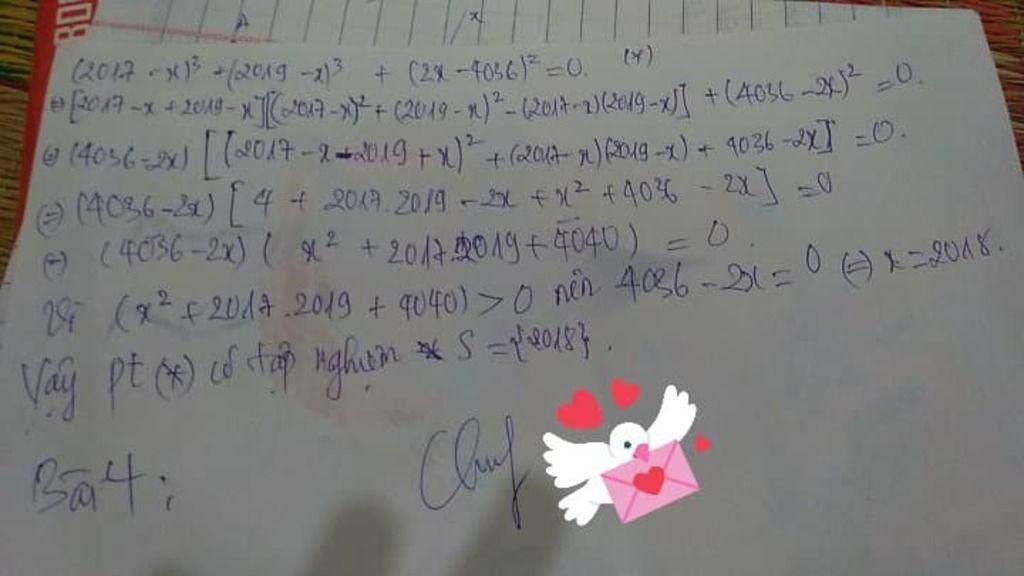 (2017 - x)³ + (2019 - x)³ + (2x - 4036)² = 0. (*)
⇔ [2017 - x + 2019 - x][(2017 - x)² + (2019 - x)² - (2017 - x)(2019 - x)] + (4036 - 2x)² = 0.
⇔ (4036 - 2x) [(2017 - x - 2019 + x)² + (2017 - x)(2019 - x) + 4036 - 2x] = 0.
⇔ (4036 - 2x) [4 + 2017.2019 - 2x + x² + 4036 - 2x] = 0
⇔ (4036 - 2x) (x² + 2017.2019 + 4040) = 0.
Vì (x² + 2017.2019 + 4040) > 0 nên 4036 - 2x = 0 ⇔ x = 2018.
Vậy pt (*) có tập nghiệm S = {2018}.
Bài 4: